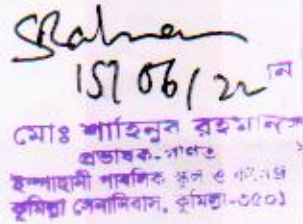 SRahman
15/06/22
মোঃ শাহিনুর রহমান
প্রভাষক-গণিত
ইস্পাহানী পাবলিক স্কুল ও কলেজ
কুমিল্লা সেনানিবাস, কুমিল্লা-৩৫০১